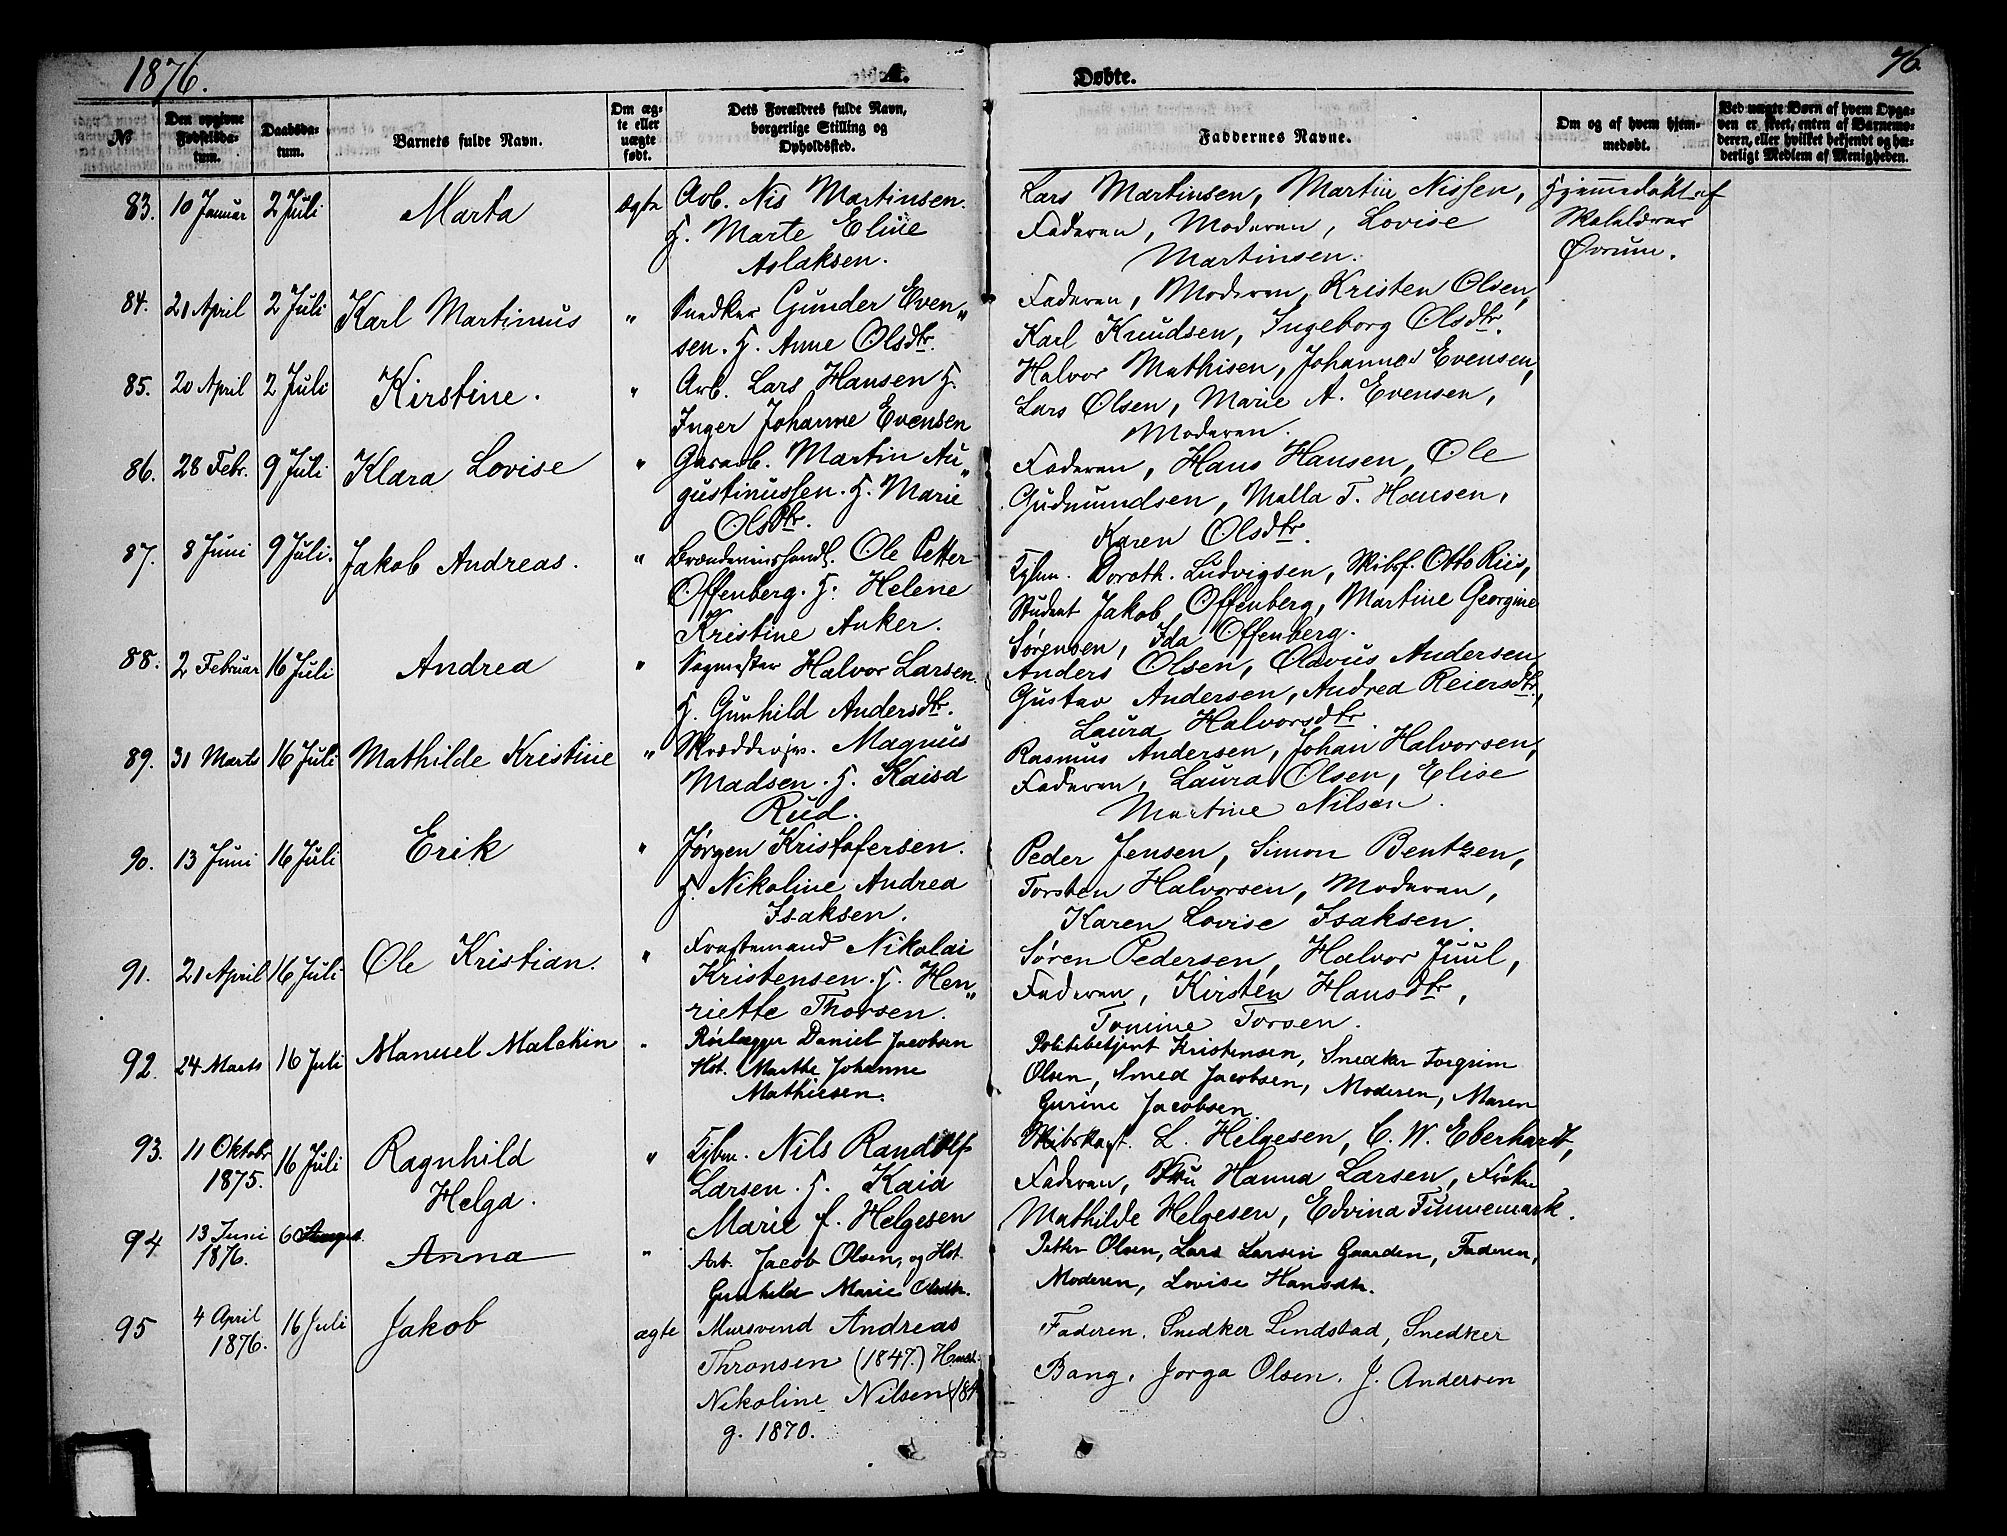 1876.
A. Døbte.
76.
№
Den opgivne Fødselsdatum.
Daabsdatum.
Barnets fulde Navn.
Om ægte eller uægte født.
Dets Forældres fulde Navn, borgerlige Stilling og Opholdssted.
Faddernes Navne.
Om og af hvem hjemmedøbt.
Ved uægte Børn af hvem Opgaven er skeet, enten af Barnemoderen, eller hvilket bekjendt og hæderligt Medlem af Menigheden.
83. 10 Januar 2 Juli Marta ægte Arb. Nis Martinsen.
H. Marte Eline
Aslaksen.
Lars Martinsen, Martin Nissen,
Faderen, Moderen, Lovise
Martinsen.
Hjemmedøbt af
Skolelærer
Øvrum.
84. 21 April 2 Juli Karl Martinius " Snedker Gunder Even„
sen. H. Anne Olsdtr.
Faderen, Moderen, Kristen Olsen,
Karl Knudsen, Ingeborg Olsdtr.
85. 20 April 2 Juli Kirstine. " Arb. Lars Hansen H.
Inger Johanne Evensen
Halvor Mathisen, Johannes Evensen,
Lars Olsen, Marie A. Evensen,
Moderen.
86. 28 Febr. 9 Juli Klara Lovise " Garvarb. Martin Au„
gustinussen. H. Marie
Olsdtr.
Faderen, Hans Hansen, Ole
Gudmundsen, Malla T. Hansen,
Karen Olsdtr.
87. 8 Juni 9 Juli. Jakob Andreas. " Brændevinshandl. Ole Petter
Offenberg. H. Helene
Kristine Anker.
Kjbm. Doroth. Ludvigsen, Skibsf. Otto Riis,
Student Jakob Offenberg, Martine Georgine
Sørensen, Ida Offenberg.
88. 2 Februar 16 Juli Andrea " Sagmester Halvor Larsen.
H. Gunhild Andersdtr.
Anders Olsen, Olavus Andersen,
Gustav Andersen, Andrea Reiersdtr,
Laura Halvorsdtr.
89. 31 Marts 16 Juli Mathilde Kristine " Skræddersv. Magnus
Madsen. H. Kaisa
Rud.
Rasmus Andersen, Johan Halvorsen,
Faderen, Laura Olsen, Elise
Martine Nilsen.
90. 13 Juni 16 Juli Erik " Jørgen Kristofersen.
H. Nikoline Andrea
Isaksen.
Peder Jensen, Simon Bentzen,
Torsten Halvorsen, Moderen,
Karen Lovise Isaksen.
91. 21 April 16 Juli Ole Kristian. " Fragtemand Nikolai
Kristensen. H. Hen„
riette Thorsen.
Søren Pedersen, Halvor Juul,
Faderen, Kirsten Hansdtr,
Tomine Torsen.
92. 24 Marts 16 Juli Manuel Malchin " Rørlægger Daniel Jacobsen
Hst. Marthe Johanne
Mathiesen.
Politibetjent Kristensen, Snedker Torgrim
Olsen, Smed Jacobsen, Moderen, Maren
Gurine Jacobsen.
93. 11 Oktobr
1875. 16 Juli Ragnhild
Helga. " Kjbm. Nils Randolf
Larsen. H. Kaia
Marie f. Helgesen
Skibskapt. L. Helgesen, C. W. Eberhardt,
Faderen, Fru Hanna Larsen, Frøken
Mathilde Helgesen, Edvina Finnemark.
94 13 Juni
1876. 6 August Anna " Arb. Jacob Olsen, og Hst.
Gunhild Marie Olsdtr.
Petter Olsen, Lars Larsen Gaarden, Faderen,
Moderen, Lovise Hansdtr.
95 4 April
1876. 16 Juli Jakob ægte Mursvend Andreas
Thronsen (1847.) Hust.
Nikoline Nilsen (184
g. 1870.
Faderen. Snedker Lindstad, Snedker
Bang, Jorga Olsen. J. Andersen